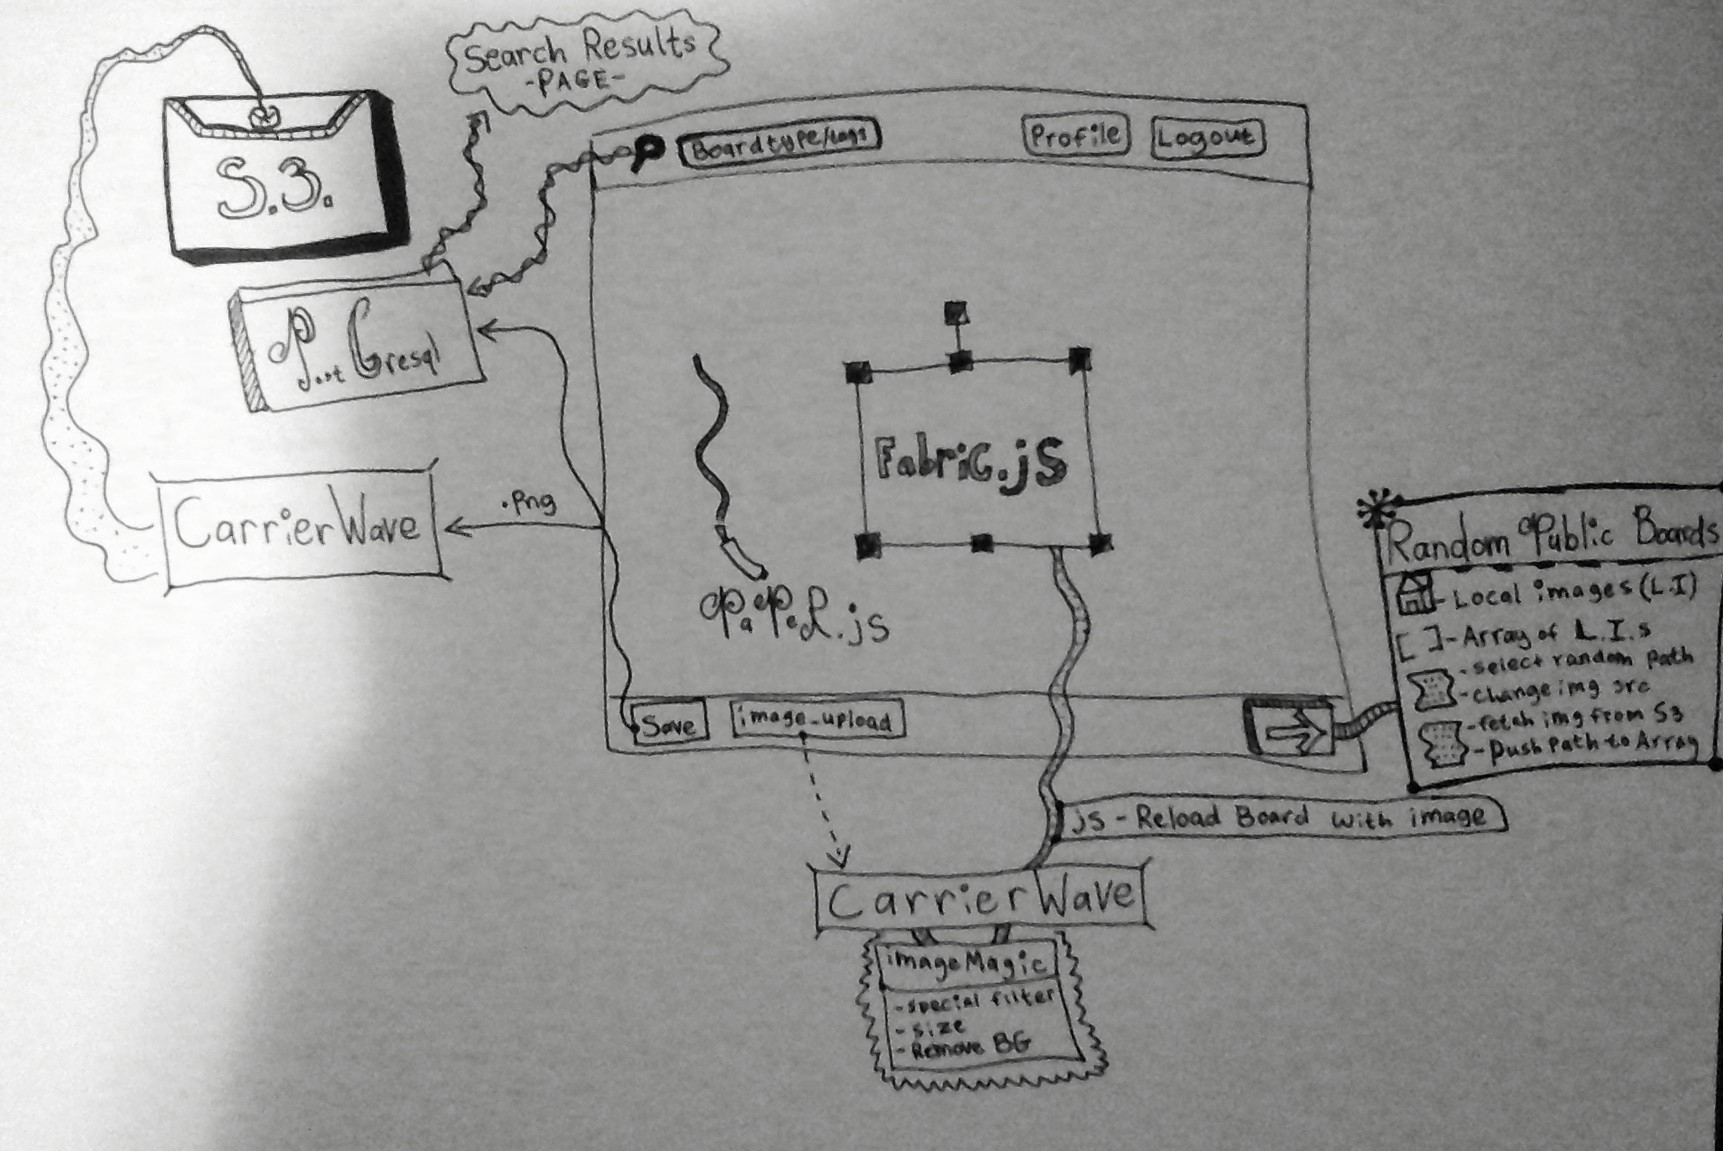 Search Results
-PAGE-
S.3.
Boardtype/tags
Profile
Logout
P..t Gresql
Fabric.js
CarrierWave
.Png
PaPeR.js
Random Public Boards
- Local images (L.I)
[ ]- Array of L.I.s
- select random path
- change img src
- fetch img from S3
- Push Path to Array
Save
image_upload
js - Reload Board with image
CarrierWave
imageMagic
- special filter
- size
- Remove BG